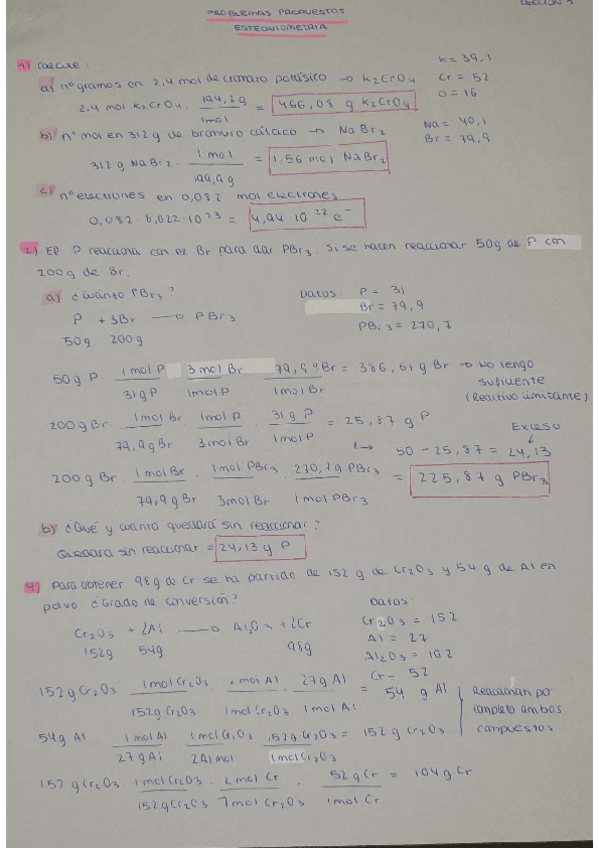 PROBLEMAS PROPUESTOS
ESTEQUIOMETRIA
1) Calcule:
K = 39,1
Cr = 52
O = 16
a) nº gramos en 2,4 mol de cromato potásico → K2CrO4
2,4 mol K2CrO4 · 194,2g / 1mol = 466,08 g K2CrO4
b) nº mol en 312 g de bromuro cálcico → NaBr2
Na = 40,1
Br = 79,9
312 g NaBr2 · 1 mol / 199,9g = 1,56 mol NaBr2
c) nº electrones en 0,082 mol electrones
0,082 · 6,022·10^23 = 4,94 10^22 e-
2) El P reacciona con el Br para dar PBr3. Si se hacen reaccionar 50g de P con
200g de Br.
a) ¿Cuánto PBr3?
Datos: P = 31
Br = 79,9
PBr3 = 270,7
P + 3Br → PBr3
50g 200g
50g P · 1mol P / 31g P · 3mol Br / 1mol P · 79,9gBr / 1mol Br = 386,61g Br → No tengo
suficiente
(Reactivo limitante)
200gBr · 1mol Br / 79,9gBr · 1mol P / 3mol Br · 31g P / 1mol P = 25,87g P
Exceso
↳ 50 - 25,87 = 24,13
200g Br · 1molBr / 79,9gBr · 1mol PBr3 / 3mol Br · 270,7g PBr3 / 1mol PBr3 = 225,87 g PBr3
b) ¿Qué y cuanto quedará sin reaccionar?
Quedara sin reaccionar = 24,13 g P
4) Para obtener 98g de Cr se ha partido de 152 g de Cr2O3 y 54 g de Al en
polvo ¿Grado de conversión?
Datos:
Cr2O3 = 152
Al = 27
Al2O3 = 102
Cr = 52
Cr2O3 + 2Al → Al2O3 + 2Cr
152g 54g 98g
152gCr2O3 · 1molCr2O3 / 152gCr2O3 · 2molAl / 1molCr2O3 · 27g Al / 1mol Al = 54 g Al
Reaccionan por
completo ambos
compuestos
54g Al · 1mol Al / 27g Al · 1molCr2O3 / 2Al mol · 152gCr2O3 / 1molCr2O3 = 152 g Cr2O3
152gCr2O3 · 1molCr2O3 / 152gCr2O3 · 2mol Cr / 1mol Cr2O3 · 52gCr / 1mol Cr = 104g Cr